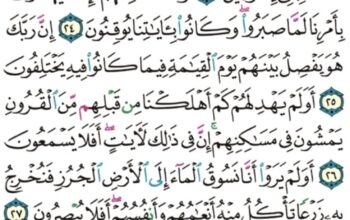 بِأَمْرِنَا لَمَّا صَبَرُوا۟ ۖ وَكَانُوا۟ بِـَٔايَـٰتِنَا يُوقِنُونَ ٢٤ إِنَّ رَبَّكَ
هُوَ يَفْصِلُ بَيْنَهُمْ يَوْمَ ٱلْقِيَـٰمَةِ فِيمَا كَانُوا۟ فِيهِ يَخْتَلِفُونَ
٢٥ أَوَلَمْ يَهْدِ لَهُمْ كَمْ أَهْلَكْنَا مِن قَبْلِهِم مِّنَ ٱلْقُرُونِ
يَمْشُونَ فِى مَسَـٰكِنِهِمْ ۚ إِنَّ فِى ذَٰلِكَ لَـَٔايَـٰتٍ ۖ أَفَلَا يَسْمَعُونَ
٢٦ أَوَلَمْ يَرَوْا۟ أَنَّا نَسُوقُ ٱلْمَآءَ إِلَى ٱلْأَرْضِ ٱلْجُرُزِ فَنُخْرِجُ
بِهِۦ زَرْعًا تَأْكُلُ مِنْهُ أَنْعَـٰمُهُمْ وَأَنفُسُهُمْ ۖ أَفَلَا يُبْصِرُونَ ٢٧